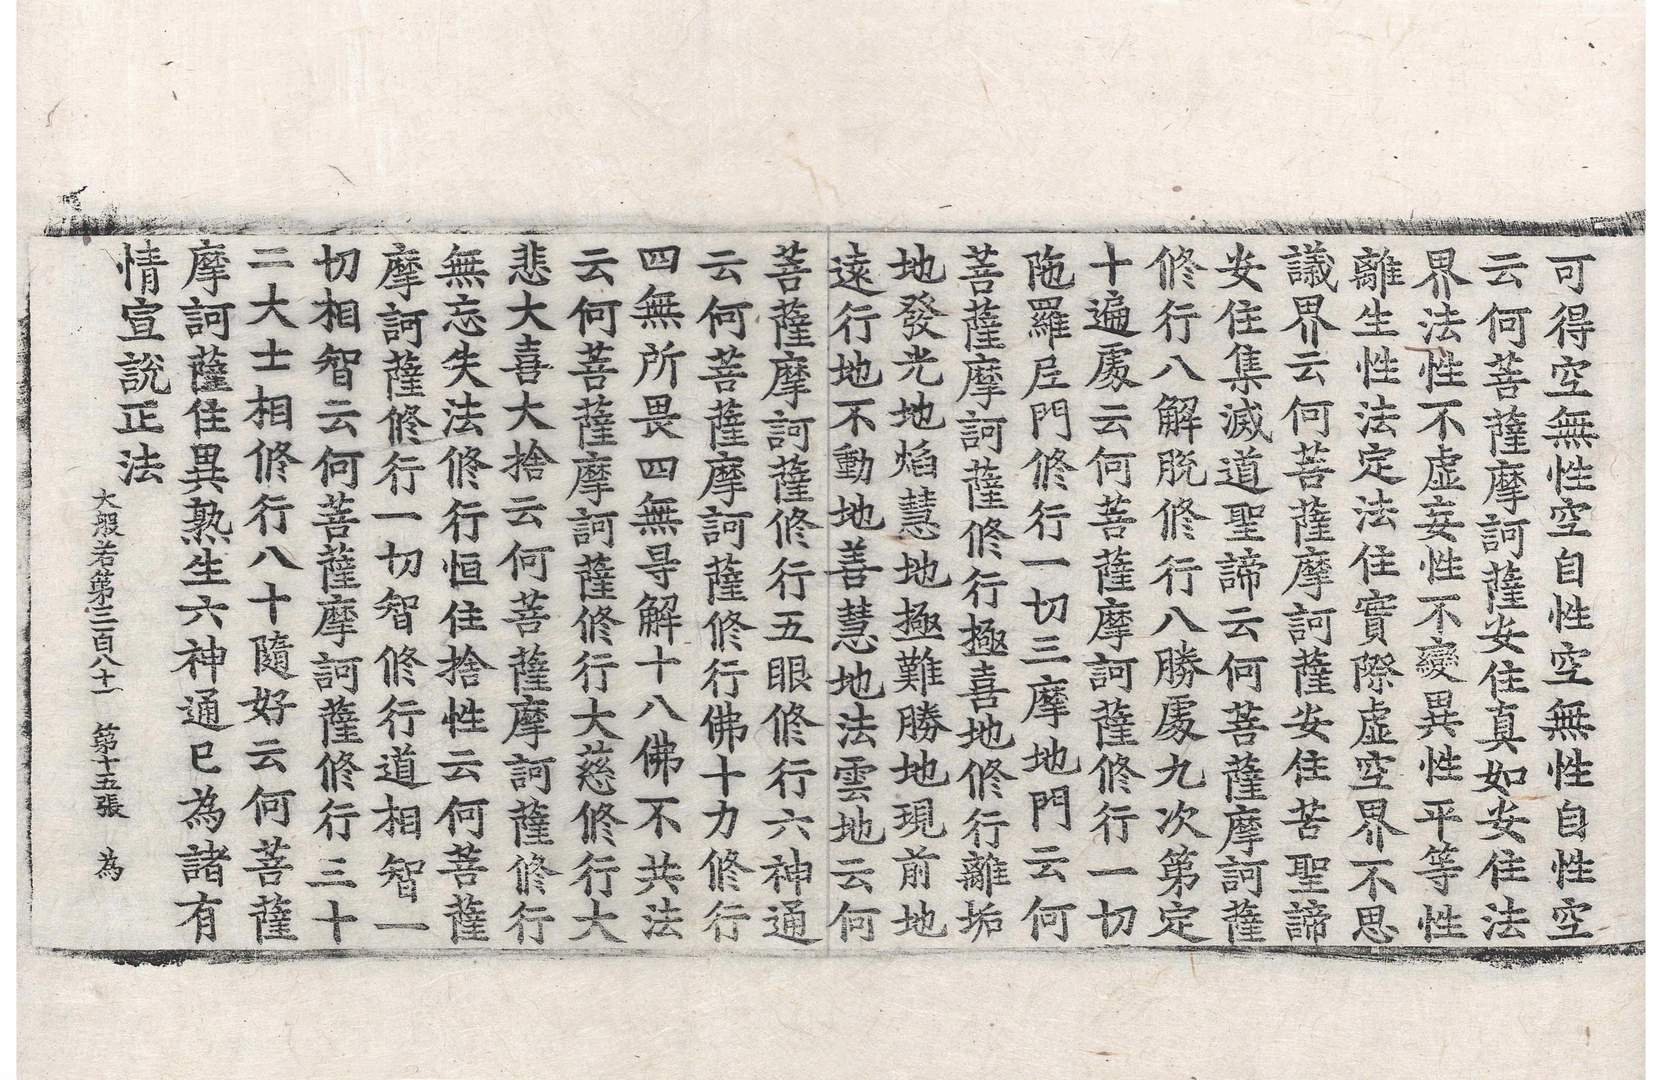 可得空無性空自性空無性自性空
云何菩薩摩訶薩安住真如安住法
界法性不虛妄性不變異性平等性
離生性法定法住實際虛空界不思
議界云何菩薩摩訶薩安住苦聖諦
安住集滅道聖諦云何菩薩摩訶薩
修行八解脫修行八勝處九次第定
十遍處云何菩薩摩訶薩修行一切
陁羅尼門修行一切三摩地門云何
菩薩摩訶薩修行極喜地修行離垢
地發光地焰慧地極難勝地現前地
遠行地不動地善慧地法雲地云何
菩薩摩訶薩修行五眼修行六神通
云何菩薩摩訶薩修行佛十力修行
四無所畏四無㝵解十八佛不共法
云何菩薩摩訶薩修行大慈修行大
悲大喜大捨云何菩薩摩訶薩修行
無忘失法修行恒住捨性云何菩薩
摩訶薩修行一切智修行道相智一
切相智云何菩薩摩訶薩修行三十
二大士相修行八十隨好云何菩薩
摩訶薩住異熟生六神通已為諸有
情宣說正法
大般若第三百八十一 第十五張 為